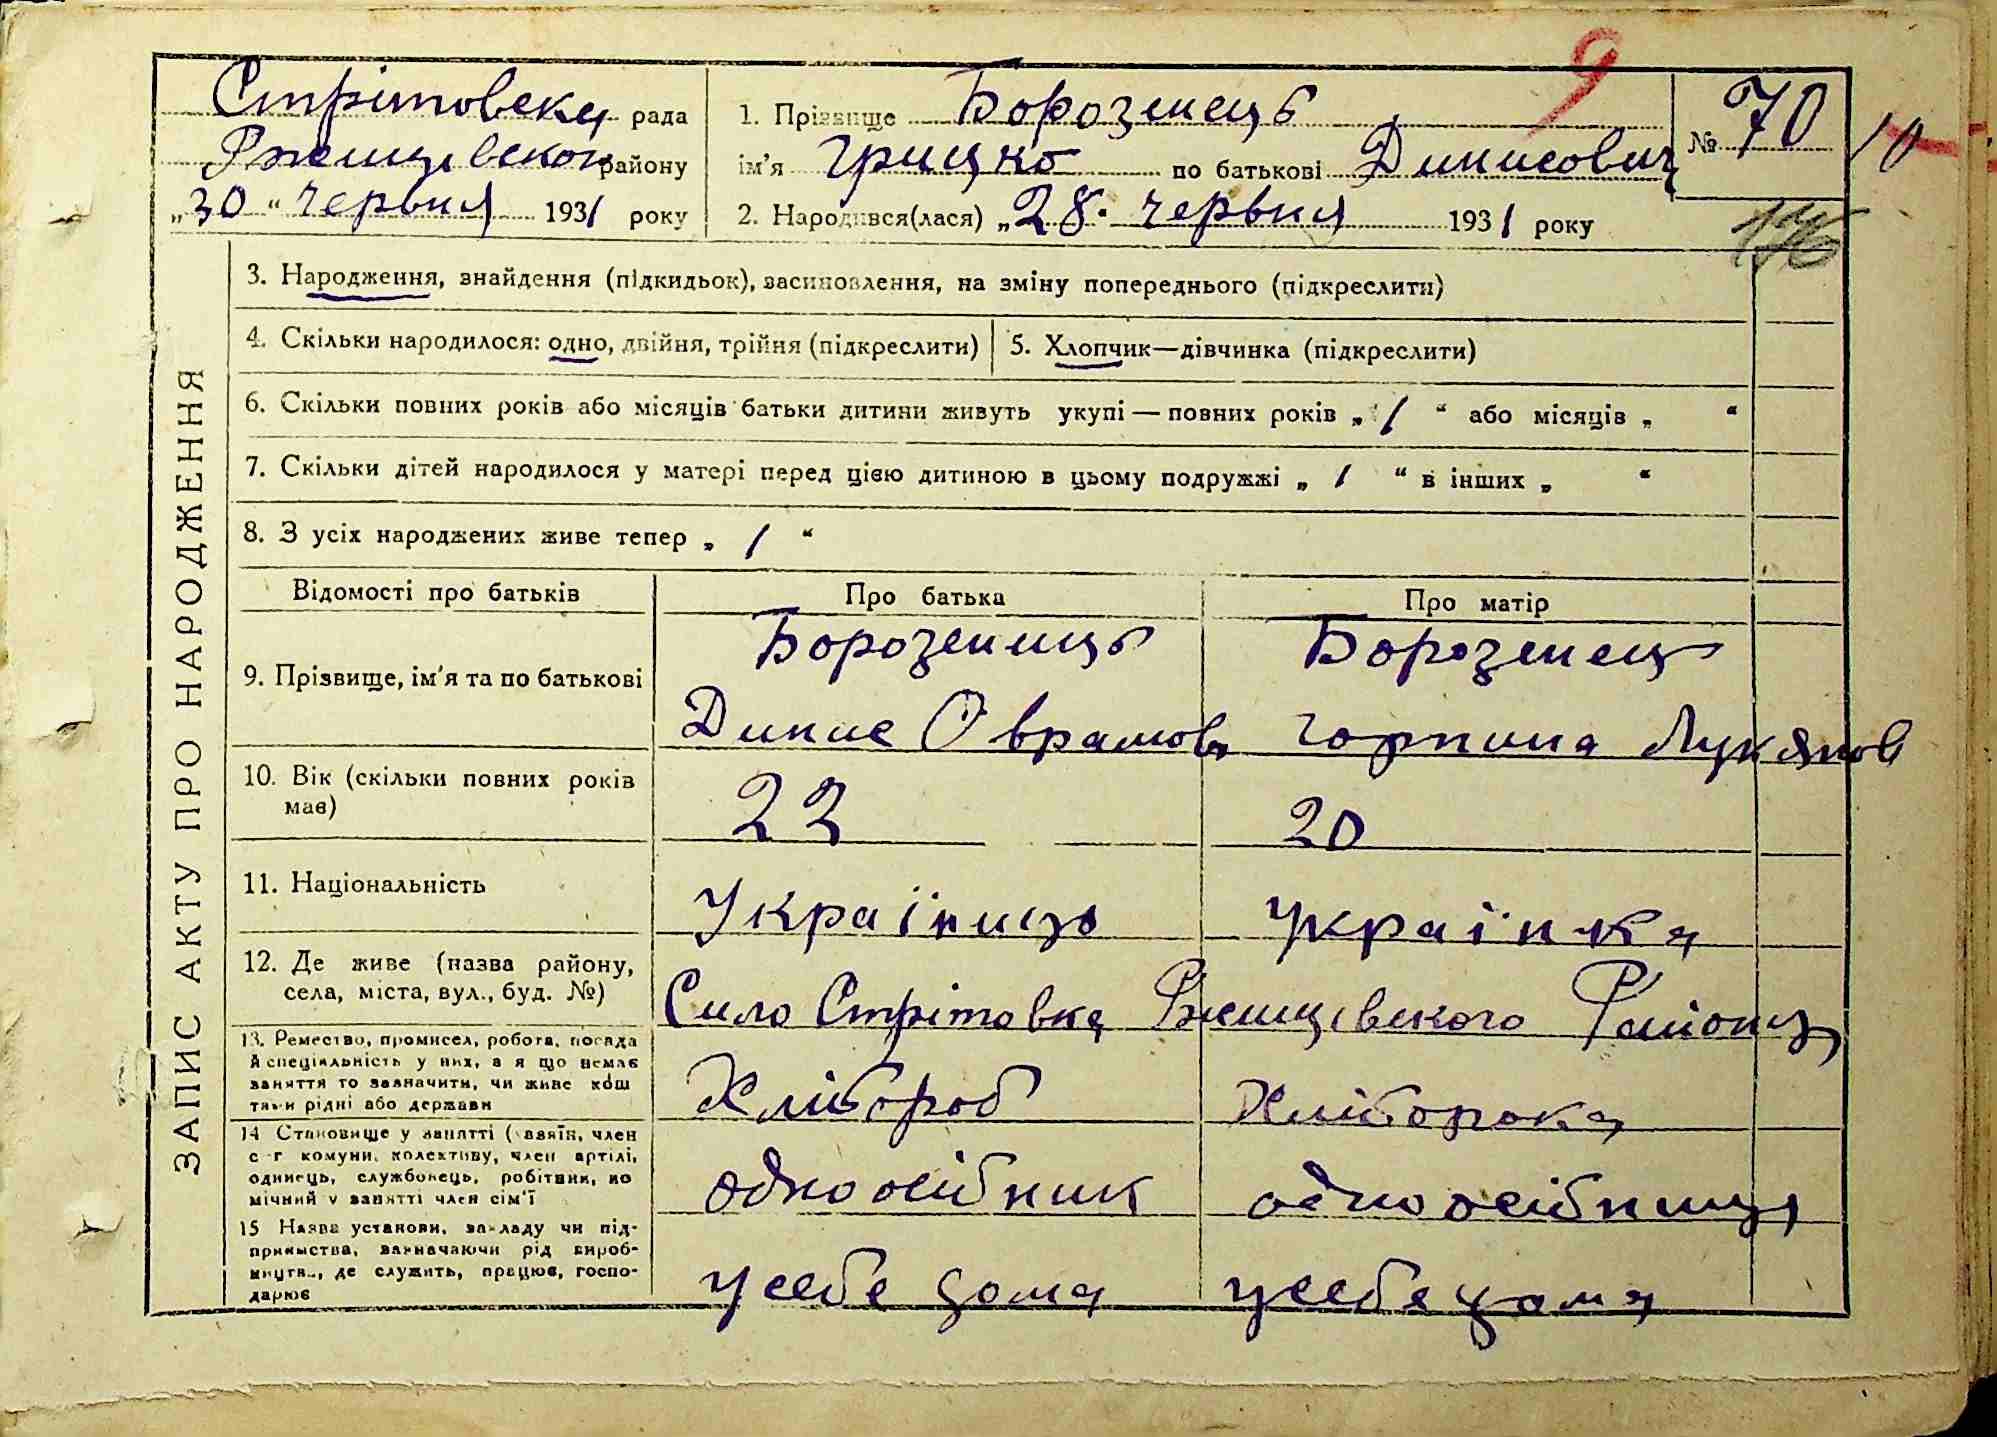 Стрітовска рада
Ржищевского району
„30“ червня 1931 року
1. Прізвище Борозенець
ім'я Грицко по батькові Динисович
2. Народився(лася) „28. червня 1931 року
№ 70
9
10
176
ЗАПИС АКТУ ПРО НАРОДЖЕННЯ
3. Народження, знайдення (підкидьок), засиновлення, на зміну попереднього (підкреслити)
4. Скільки народилося: одно, двійня, трійня (підкреслити)
5. Хлопчик—дівчинка (підкреслити)
6. Скільки повних років або місяців батьки дитини живуть укупі — повних років „ 1 “ або місяців „ “
7. Скільки дітей народилося у матері перед цією дитиною в цьому подружжі „ 1 “ в інших „ “
8. З усіх народжених живе тепер „ 1 “
Відомості про батьків Про батька Про матір
9. Прізвище, ім'я та по батькові
Борозениць
Динис Оврамов
Борозенец
Горпина Лукянов
10. Вік (скільки повних років
має)
22
20
11. Національність
Україниць
Українка
12. Де живе (назва району,
села, міста, вул., буд. №)
Сило Стрітовка Ржищевского Району
13. Ремество, промисел, робота, посада
й спеціяльність у них, а я що немає
заняття то зазначити, чи живе кош
тами рідні або держави
Хлібороб
Хліборока
14 Становище у занятті (хазяїн, член
с-г комуни, колективу, член артілі,
одинець, службонець, робітник, по
мічний у занятті член сім'ї
одноосібник
одноосібниця
15 Назва установи, закладу чи під-
приємства, зазначаючи рід вироб-
ництв., де служить, працює, госпо-
дарює
у себе дома
у себе дома